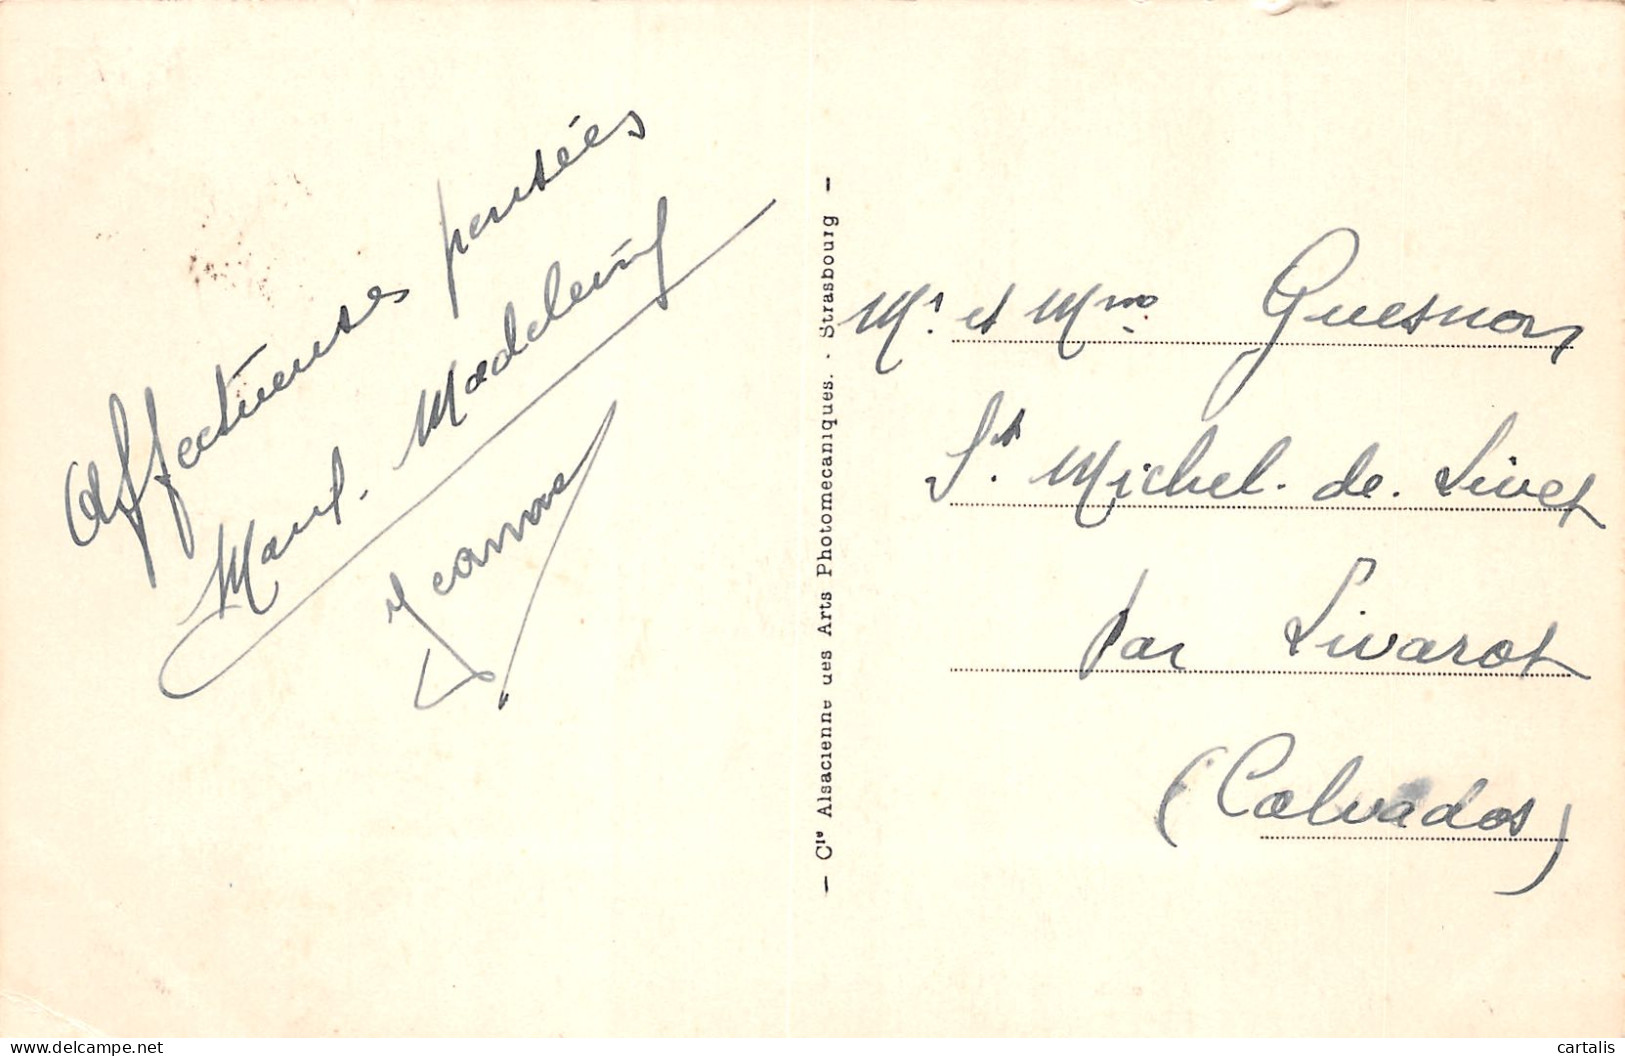 Affectueuses pensées
Madeleine
Jeanne
— Cie Alsacienne des Arts Photomecaniques. - Strasbourg —
Mr. et Mme Guesnon
St. Michel. de. Livet
par Livarot
(Calvados)
www.delcampe.net
cartalis